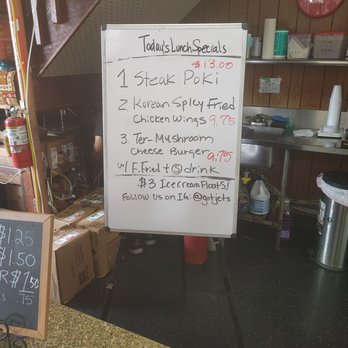 Today's Lunch Specials
$13.00
1 Steak Poki
2. Korean Spicy Fried
Chicken Wings 9.75
3. Ter-Mushroom
Cheese Burger 9.75
w/ F. Fried + S drink
$3 Icecream Floats!
Follow us on IG: @gotjcts
$1.25
$1.50
R $1.50
.75